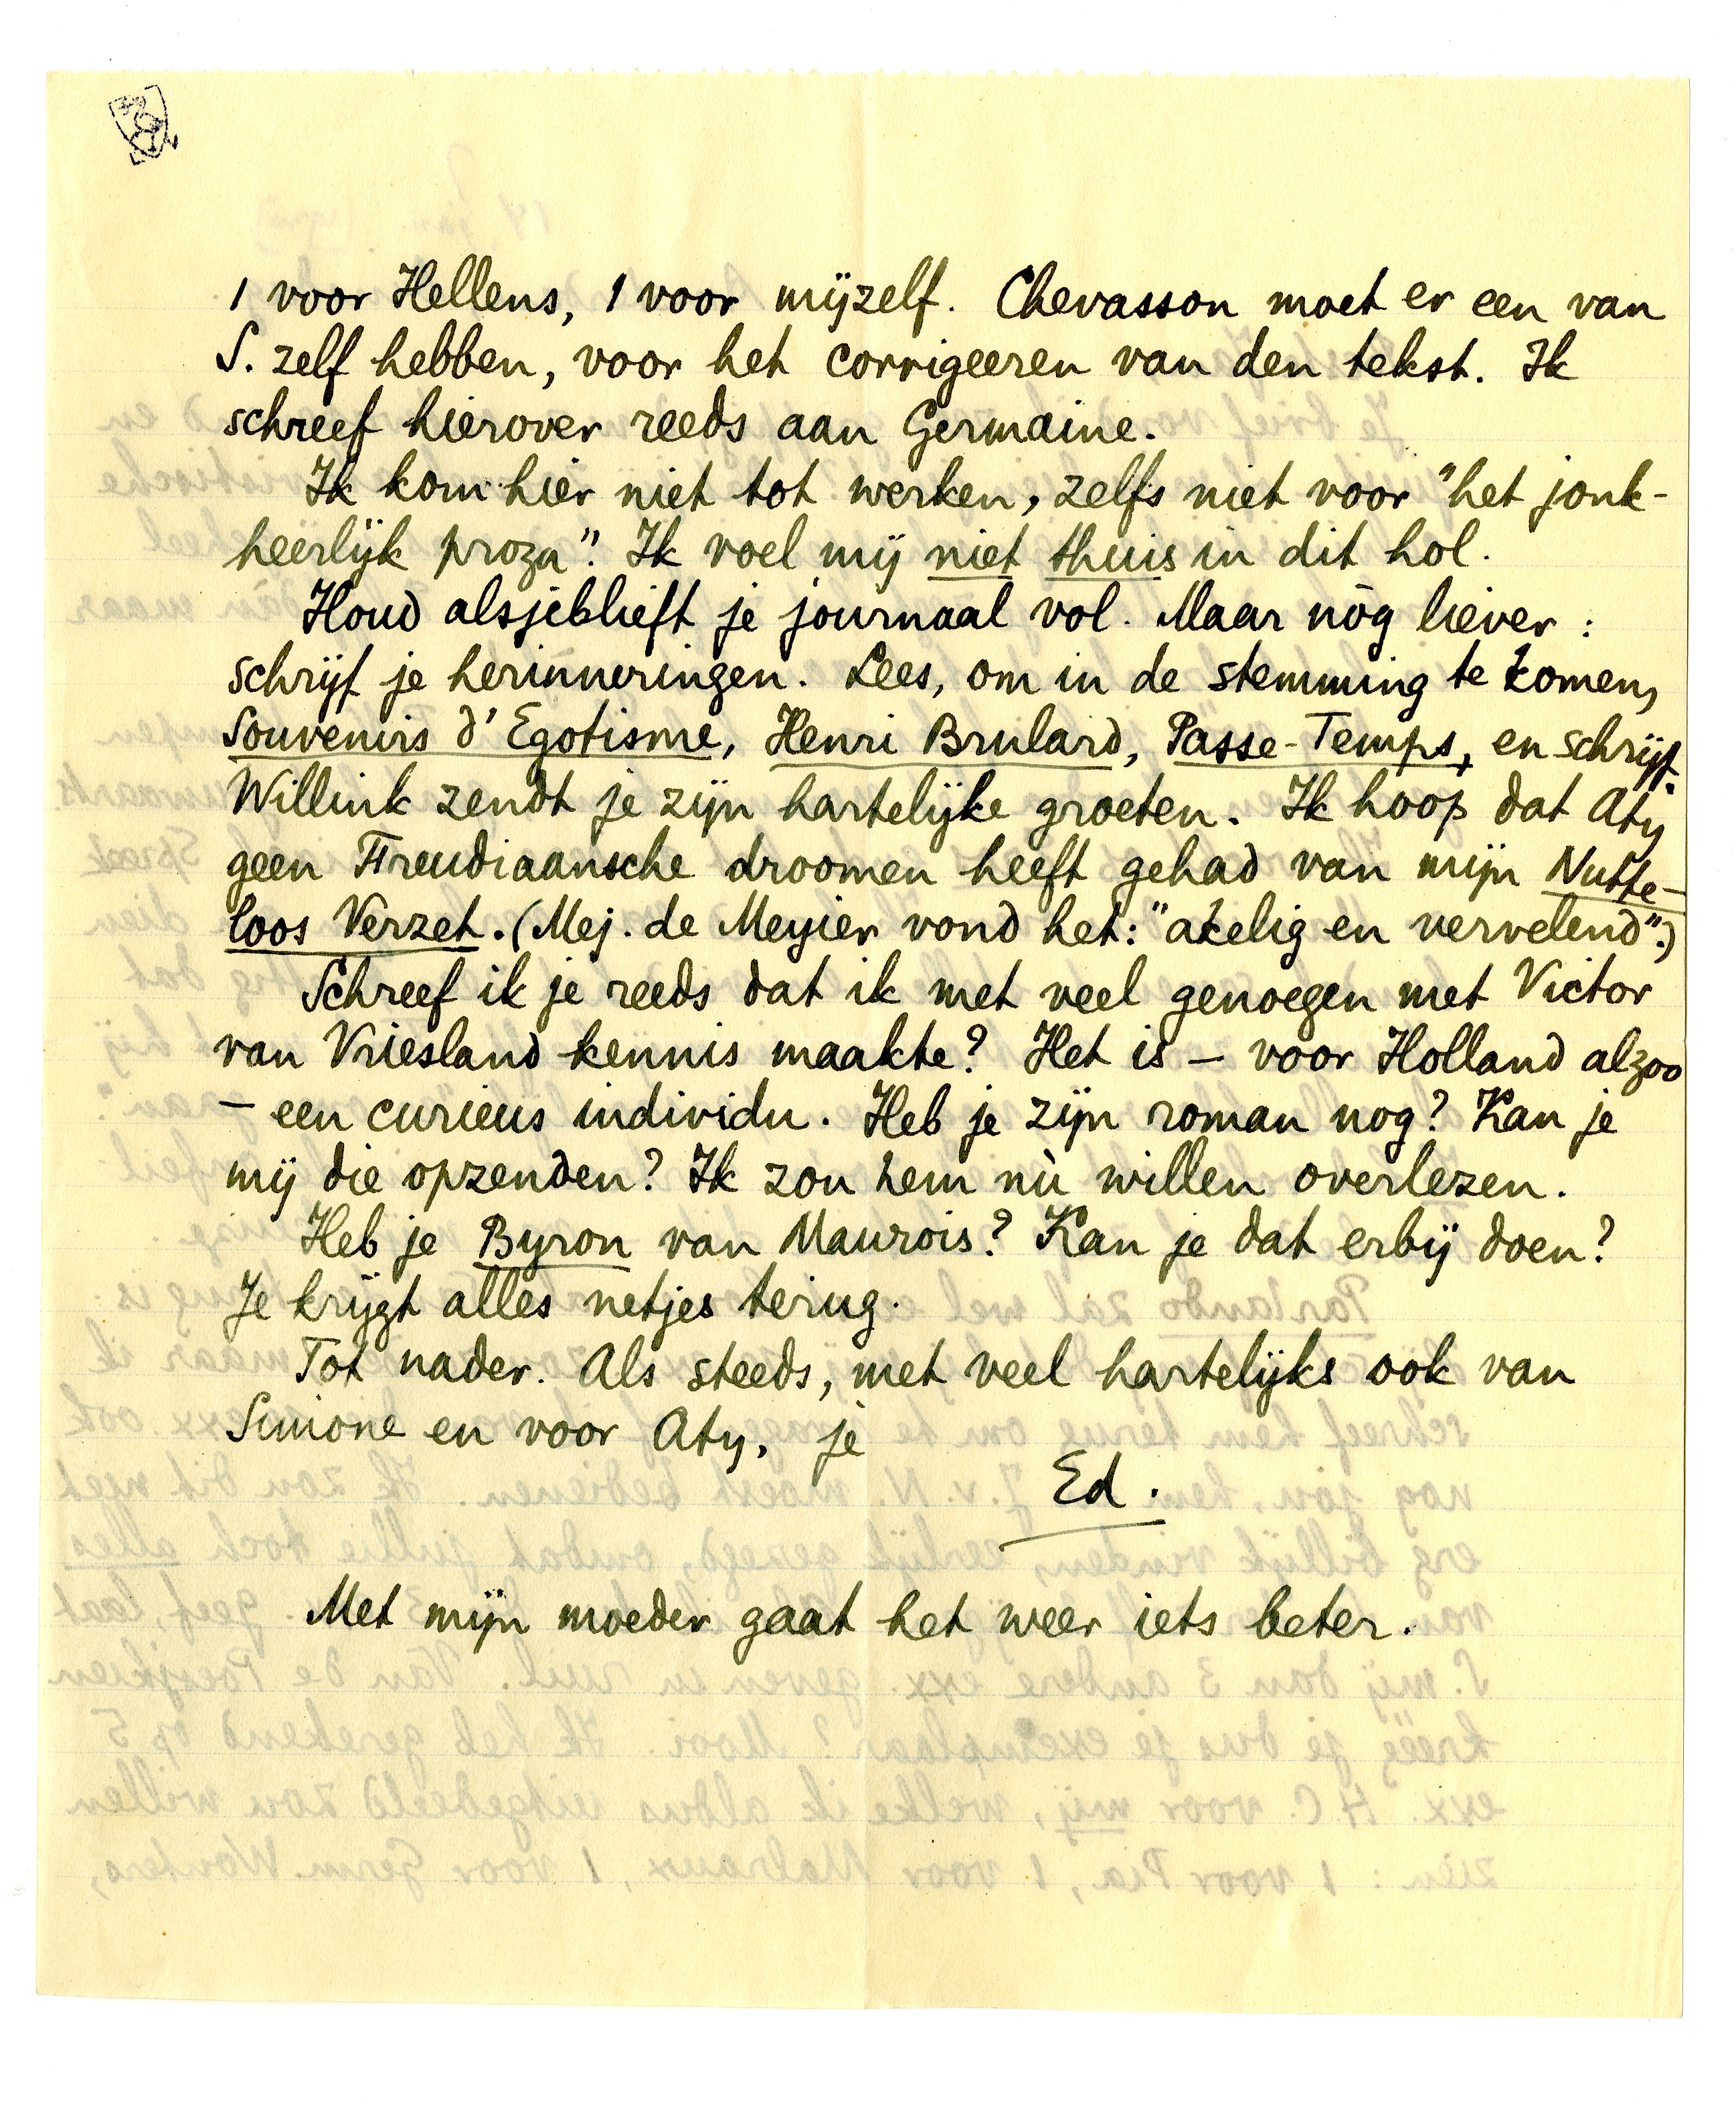 1 voor Hellens, 1 voor mijzelf. Chevasson moet er een van
S. zelf hebben, voor het corrigeeren van den tekst. Ik
schreef hierover reeds aan Germaine.
Ik kom hier niet tot werken, zelfs niet voor "het jonk-
heerlijk proza". Ik voel mij niet thuis in dit hol.
Houd alsjeblieft je journaal vol. Maar nòg liever :
schrijf je herinneringen. Lees, om in de stemming te komen,
Souvenirs d'Egotisme, Henri Brulard, Passe-Temps, en schrijf.
Willink zendt je zijn hartelijke groeten. Ik hoop dat Aty
geen Freudiaansche droomen heeft gehad van mijn Nutte-
loos Verzet. (Mej. de Meyier vond het: "akelig en vervelend".)
Schreef ik je reeds dat ik met veel genoegen met Victor
van Vriesland kennis maakte? Het is – voor Holland alzoo
– een curieus individu. Heb je zijn roman nog? Kan je
mij die opzenden? Ik zou hem nù willen overlezen.
Heb je Byron van Maurois? Kan je dat erbij doen?
Je krijgt alles netjes terug.
Tot nader. Als steeds, met veel hartelijks ook van
Simone en voor Aty, je
Ed.
Met mijn moeder gaat het weer iets beter.